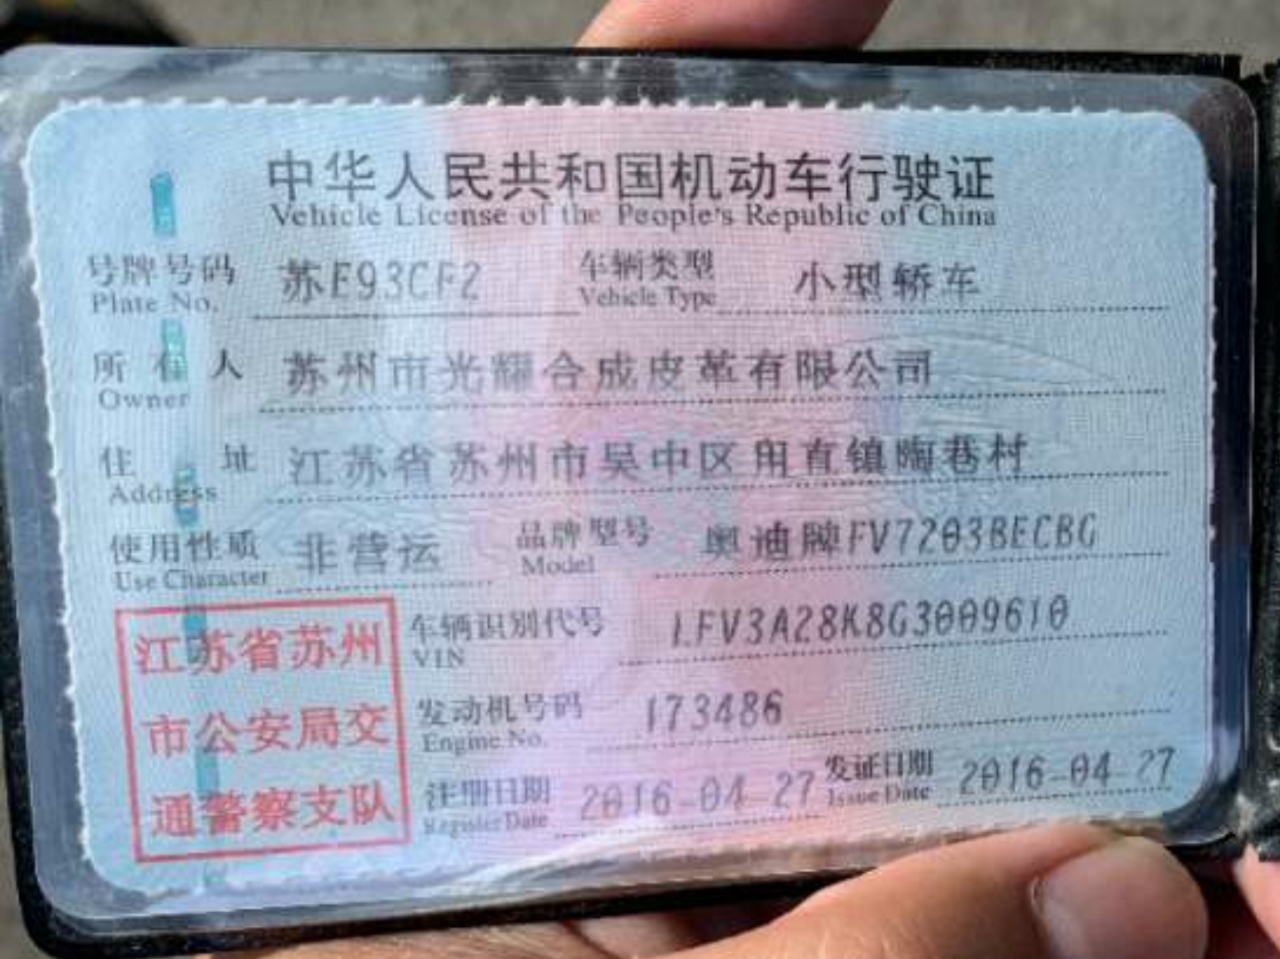 中华人民共和国机动车行驶证
Vehicle License of the People's Republic of China
号牌号码 苏E93CF2 车辆类型 小型轿车
Plate No. Vehicle Type
所有人 苏州市光耀合成皮革有限公司
Owner
住址 江苏省苏州市吴中区甪直镇陶巷村
Address
使用性质 非营运 品牌型号 奥迪牌FV7203BECBG
Use Character Model
江苏省苏州
市公安局交
通警察支队
车辆识别代号 LFV3A28K8G3009610
VIN
发动机号码 173486
Engine No.
注册日期 2016-04-27 发证日期 2016-04-27
Register Date Issue Date